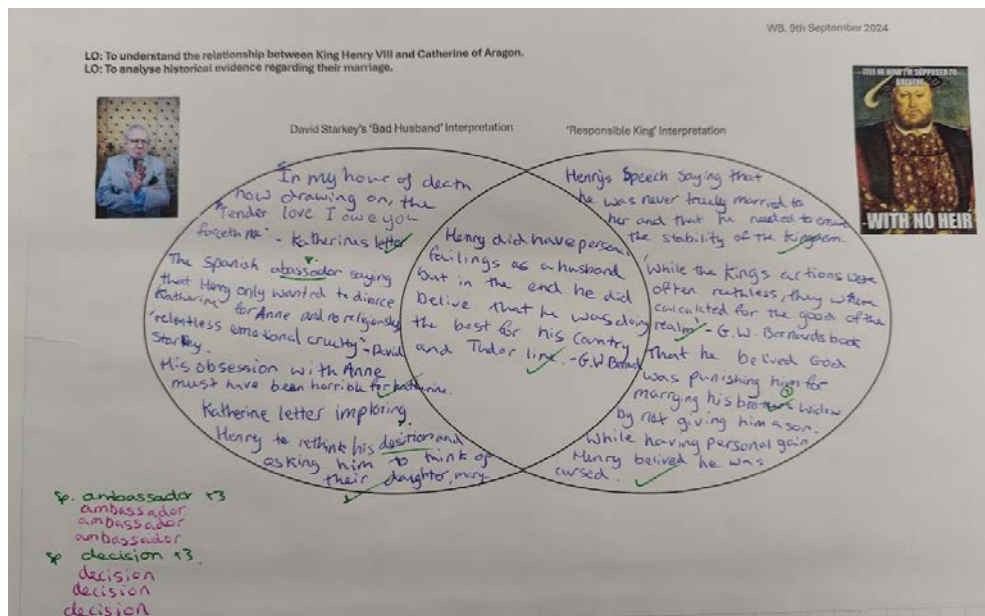 WB. 9th September 2024
LO: To understand the relationship between King Henry VIII and Catherine of Aragon.
LO: To analyse historical evidence regarding their marriage.
David Starkey's 'Bad Husband' Interpretation
"In my hour of death
now drawing on, the
tender love I owe you
forceth me" - Katherines letter
The Spanish abassador saying
that Henry only wanted to divorce
Katherine for Anne and no religiously
"relentless emotional cruelty" - David
Starkey.
His obsession with Anne
must have been horrible for katherine.
Katherine letter imploring
Henry to rethink his desition and
asking him to think of
their daughter, mary.
Henry did have personal
failings as a husband
but in the end he did
belive that he was doing
the best for his country
and Tudor line. - G.W
'Responsible King' Interpretation
Henrys Speech saying that
he was never truly married to
her and that he needed to
the stability of the kingdom.
'While the Kings actions were
often ruthless, they where
calculated for the good of the
realm' - G.W. Bernards book
That he belived God
was punishing him for
marrying his widow
by not giving him a son.
While having personal gain
Henry belived he was
cursed.
TELL ME HOW I'M SUPPOSED TO
BREATHE
-WITH NO HEIR
sp. ambassador x3
ambassador
ambassador
ambassador
sp decision x3.
decision
decision
decision